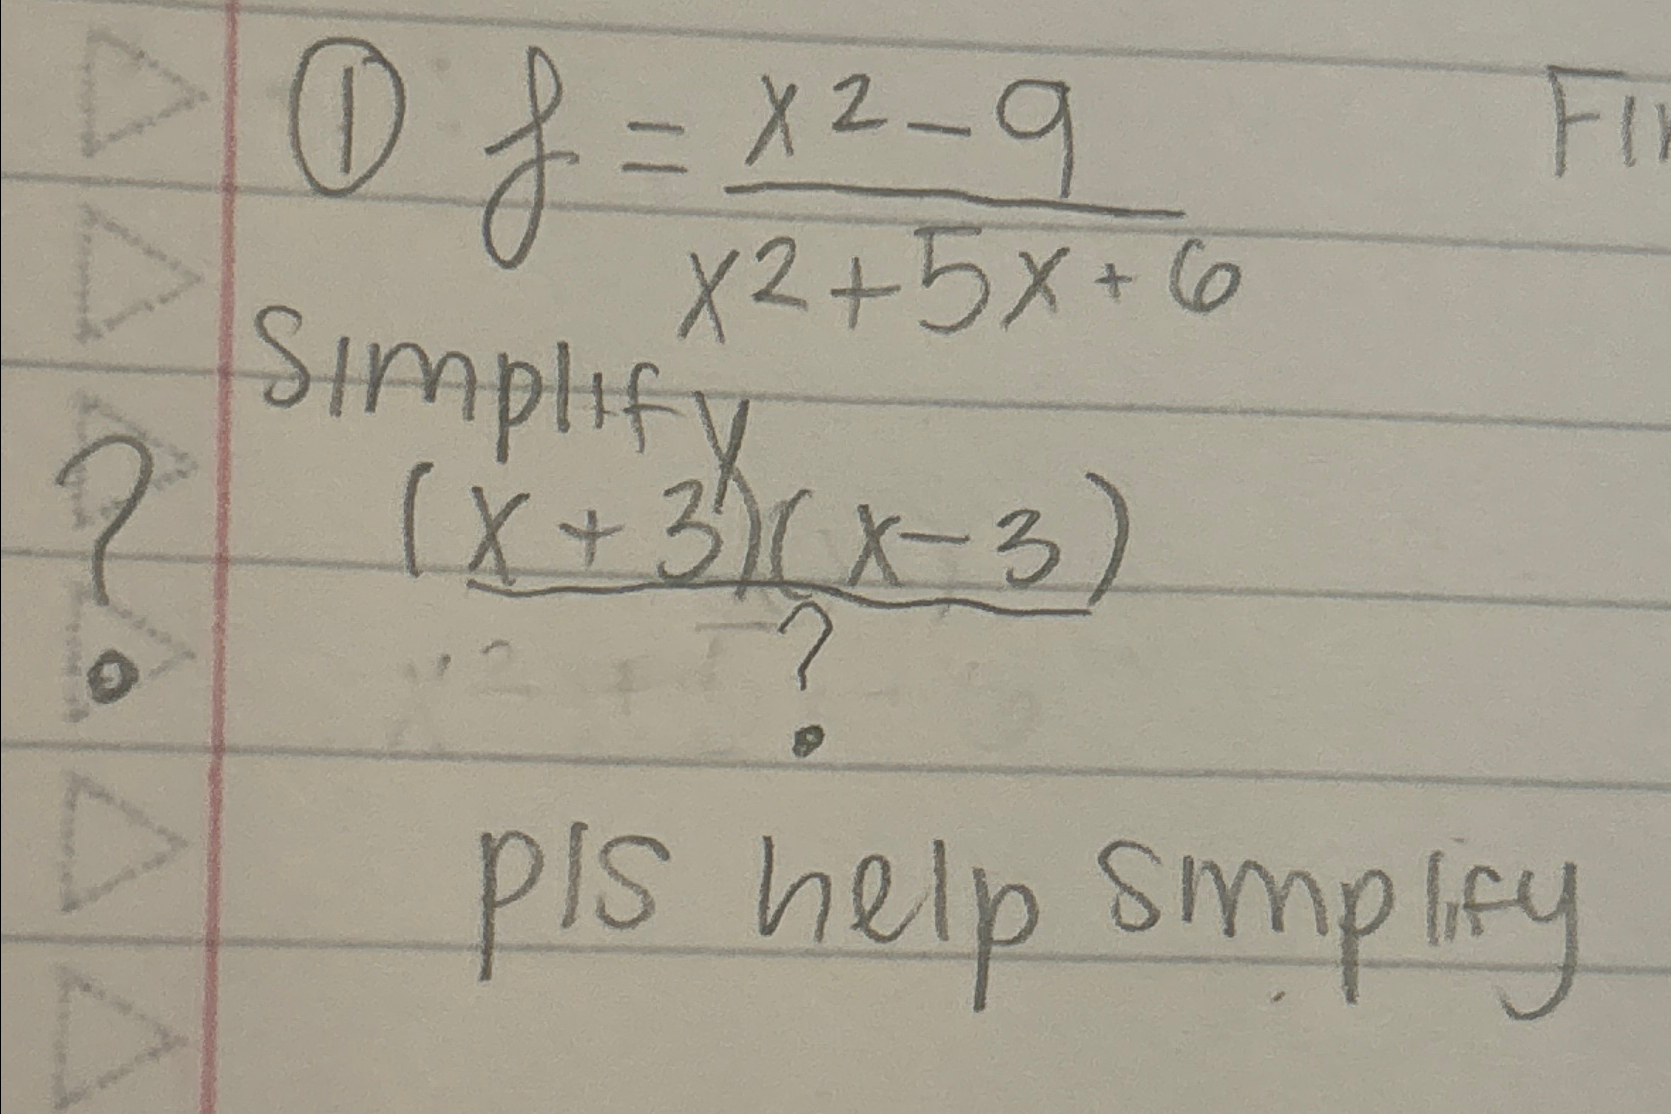 ① f = x2 - 9
x2 + 5x + 6
Simplify
(x + 3)(x - 3)
?
?
pls help simplify